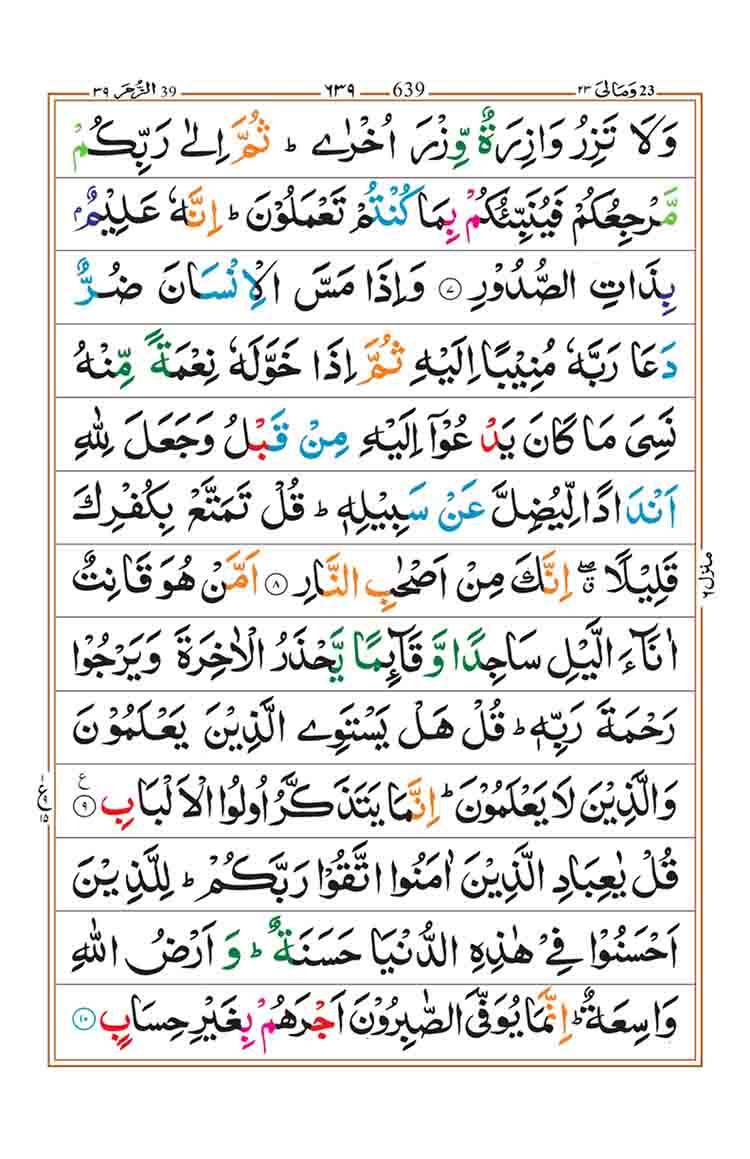 23 وَمَالِیَ ۲۳ 639 ٦٣٩ 39 الزُّمَر ۳۹
وَلَا تَزِرُ وَازِرَةٌ وِّزْرَ اُخْرٰے ؕ ثُمَّ اِلٰی رَبِّكُمْ
مَّرْجِعُكُمْ فَیُنَبِّئُكُمْ بِمَا كُنْتُمْ تَعْمَلُوْنَ ؕ اِنَّهٗ عَلِیْمٌۢ
بِذَاتِ الصُّدُوْرِ ۷ وَاِذَا مَسَّ الْاِنْسَانَ ضُرٌّ
دَعَا رَبَّهٗ مُنِیْبًا اِلَیْهِ ثُمَّ اِذَا خَوَّلَهٗ نِعْمَةً مِّنْهُ
نَسِیَ مَا كَانَ یَدْعُوْۤا اِلَیْهِ مِنْ قَبْلُ وَجَعَلَ لِلّٰهِ
اَنْدَادًا لِّیُضِلَّ عَنْ سَبِیْلِهٖ ؕ قُلْ تَمَتَّعْ بِكُفْرِكَ
قَلِیْلًا ۖۗ اِنَّكَ مِنْ اَصْحٰبِ النَّارِ ۸ اَمَّنْ هُوَ قَانِتٌ
اٰنَآءَ الَّیْلِ سَاجِدًا وَّ قَآئِمًا یَّحْذَرُ الْاٰخِرَةَ وَیَرْجُوْا
رَحْمَةَ رَبِّهٖ ؕ قُلْ هَلْ یَسْتَوِے الَّذِیْنَ یَعْلَمُوْنَ
وَالَّذِیْنَ لَا یَعْلَمُوْنَ ؕ اِنَّمَا یَتَذَكَّرُ اُولُوا الْاَلْبَابِ ۹ ع
قُلْ یٰعِبَادِ الَّذِیْنَ اٰمَنُوا اتَّقُوْا رَبَّكُمْ ؕ لِلَّذِیْنَ
اَحْسَنُوْا فِیْ هٰذِهِ الدُّنْیَا حَسَنَةٌ ؕ وَ اَرْضُ اللّٰهِ
وَاسِعَةٌ ؕ اِنَّمَا یُوَفَّی الصّٰبِرُوْنَ اَجْرَهُمْ بِغَیْرِ حِسَابٍ ۱۰
منزل ٦
ع ۹ ۱۵